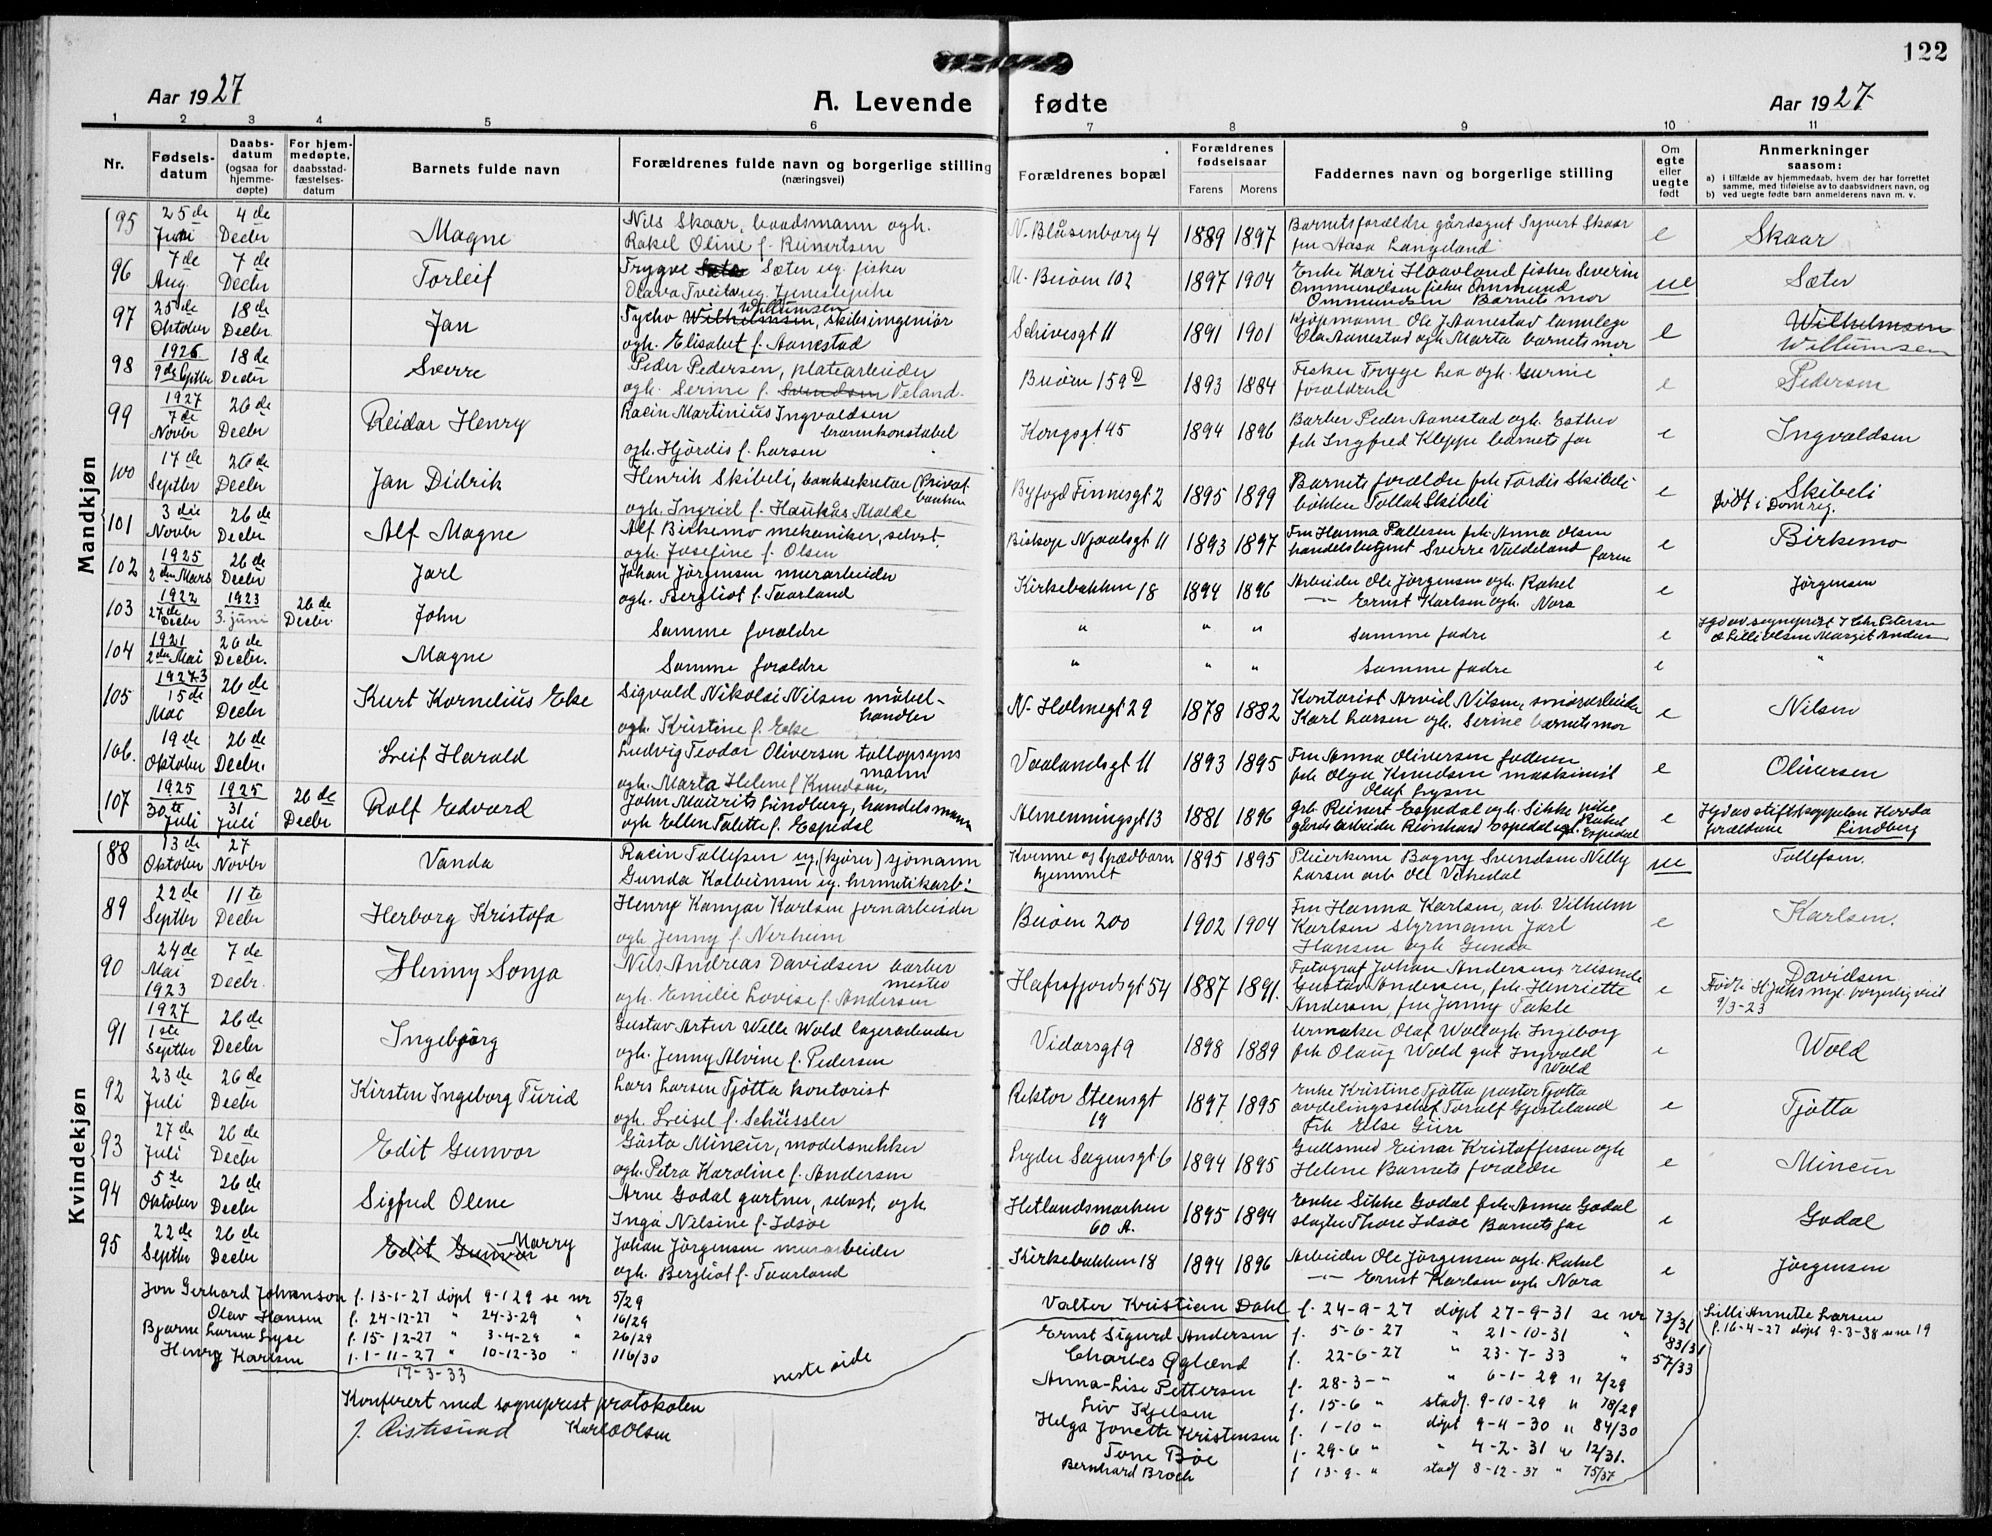 122
Aar 1927
A. Levende fødte
Aar 1927
1 2 3 4 5 6 7 8 9 10 11
Nr.
Fødsels-datum
Daabs-datum (ogsaa for hjemme-døpte)
For hjem-medøpte, daabsstad-fæstelses-datum
Barnets fulde navn
Forældrenes fulde navn og borgerlige stilling (næringsvei)
Forældrenes bopæl
Forældrenes fødselsaar
Farens Morens
Faddernes navn og borgerlig stilling
Om egte eller uegte født
Anmerkninger saasom:
a) i tilfælde av hjemmedaab, hvem der har forrettet samme, med tilføielse av to daabsvidners navn, og
b) ved uegte fødte barn anmelderens navn m. v.
Mandkjøn
95 25de Juni 4de Decbr Magne Nils Skaar, baadsmann ogh. N. Blåsenborg 4 1889 1897 Barnets forældre gårdsgut Syvert Skaar e Skaar
Rakel Oline f. Reinertsen frn Aasa Langeland
96 7de Aug. 7de Decbr Torleif Trygve Sæter ug. fisker M. Buøen 102 1897 1904 Enke Kari Haavland fisker Severin ue Sæter
Olava Tveita ug. tjenestepike Ommundsen fisker Ommund
Ommundsen Barnets mor
97 25de Oktober 18de Decbr Jan Tycho Wilhelmsen Willumsen, skibsingeniør Schivesgt 11 1891 1901 Kjøpmann Ole J Aanestad tannlege e Wilhelmsen
ogh. Elisabet f. Aanestad Ola Aanestad ogh Marta barnets mor Willumsen
98 1926 9de Septbr 18de Decbr Sverre Peder Pedersen, platearbeider Buøen 159D 1893 1884 Fisker Trygve Lea ogh. Gurine e Pedersen
ogh. Serine f. Svendsen Veland. forældrene
99 1927 7de Novbr 26de Decbr Reidar Henry Racin Martinius Ingvaldsen Kongsgt 45 1894 1896 Barber Peder Aanestad ogh. Esther e Ingvaldsen
brannkonstabel frk Ingfred Kleppe barnets far
ogh. Hjördis f. Larsen
100 17de Septbr 26de Decbr Jan Didrik Henrik Skibeli, banksekretær Privat- Byfogd Finnesgt 2 1895 1899 Barnets forældre frk Tordis Skibeli e Skibeli
banken bokken Tollak Skibeli født i Domreg.
ogh. Ingrid f. Haukås Molde
101 3die Novbr 26de Decbr Alf Magne Alf Birkemo mekaniker, selvst. Biskop Njaalsgt 11 1893 1897 Frn Hanna Pallesen frk. Anna Olsen e Birkemo
ogh. Josefine f. Olsen handelsbetjent Sverre Valdeland faren
102 1925 2den Mars 26de Decbr Jarl Johan Jörgensen murarbeider Kirkebakken 18 1894 1896 Arbeider Ole Jörgensen ogh. Rakel e Jörgensen
ogh. Bergliot f. Taarland Ernst Karlsen ogh. Nora
103 1922 27de Decbr 1923 3. juni 26de Decbr. John Samme forældre " " " Samme fadre e
104 1921 2den Mai 26de Decbr. Magne Samme forældre " " " Samme fadre e "
105 1927 15de Mai 26de Decbr Kurt Kornelius Eke Sigvald Nikolai Nilsen möbel- N. Holmegt 29 1878 1882 Kontorist Arvid Nilsen, smørarbeider e Nilsen
handler Karl Larsen ogh. Serine barnets mor
ogh. Kristine f. Eke
106. 19de Oktober 26de Decbr. Leif Harald Ludvig Teodor Oliversen tollopsyns Vaalandsgt 11 1893 1895 Frn Anna Oliversen faderen e Oliversen
mann frk Olga Knudsen maskinist
ogh. Marta Helene f Knudsen, Olaf Lysne
107 1925 30te Juli 1925 31 Juli 26de Decbr Rolf Edvard John Maurits Lindberg, handelsmann Almenningsgt 13 1881 1896 grb. Reinert Espedal ogh. Sikke pike Rakel e
ogh Ellen Talette f. Espedal gårdsarbeider Reinhard Espedal Espedal forældrene Lindberg
Kvindekjøn
88 13de Oktober 27 Novbr Vanda Racin Tollefsen ug. (kjører) sjömann Kvinne og Spædbarn hjemmet 1895 1895 Pleierskerne Bagny Svendsen Nelly ue Tollefsen.
Gunda Kolbeinsen ug. hermetikarb. Larsen arb. Ole Vikedal
89 22de Septbr 11te Decbr Herborg Kristofa Henry Kamjar Karlsen jernarbeider Buöen 200 1902 1904 Frn Hanna Karlsen, arb. Vilhelm e Karlsen.
ogh Jenny f. Nerheim Karlsen Styrmann Jarl
Hansen ogh Gunda
90 24de Mai 1923 7de Decbr. Henny Sonja Nils Andreas Davidsen barber Hafrsfjordsgt 54 1887 1891. Fotograf Johan Andersen, reisende e Davidsen
mester Gustav Andersen, frk. Henriette
ogh. Emilie Lovise f. Andersen Andersen, frn Jenny Takle 9/3-23
91 1927 1ste Septbr 26de Decbr Ingebjörg Gustav Artur Welle Wold lagerarbeider Vidarsgt 9 1898 1889 Urmaker Olaf Wold ogh. Ingeborg e Wold
ogh. Jenny Alvine f. Pedersen frk Olaug Wold gut Ingvald
Wold
92 23de Juli 26de Decbr Kirsten Ingeborg Turid Lars Larsen Tjötta kontorist Rektor Steensgt 19 1897 1895 Enke Kristine Tjötta pastor Tjötta e Tjötta
ogh. Leisel f. Schüssler avdelingsschef Toralf Gjesteland
Frk Else Giere
93 27de Juli 26de Decbr Edit Gunvor Gösta Mineur, modelsnekker Lyder Sagensgt 6 1894 1895 Gullsmed Einar Kristoffersen ogh e Mineur
ogh. Petra Karoline f. Andersen Helene Barnets forældre
94 5te Oktober 26de Decbr Sigfred Olene Arne Godal gartner, selvst, ogh. Hetlandsmarken 60 A. 1895 1894 Enke Sikke Godal frk. Anna Godal e Godal
Inga Nilsine f. Idsöe slagter Thore Idsöe Barnets far
95 22de Septbr 26de Decbr Edit Gunvor Marry Johan Jörgensen murarbeider Kirkebakken 18 1894 1896 Arbeider Ole Jörgensen ogh. Rakel e Jörgensen
ogh. Bergliot f. Taarland Ernst Karlsen ogh Nora
Jon Gerhard Johanson f. 13-1-27 døpt 9-1 29 se nr 5/29
Olav Hansen f. 24-12-27 " 24-3-29 " 16/29
Bjarne Larsen Lyse f. 15-12-27 " 3-4-29 " 26/29
Henry Karlsen f. 1-11-27 " 10-12-30 " 116/30
neste side
17-3-33
Konferert med sogneprest protokolen
Karl O Olsen
Valter Kristian Dahl f. 24-9-27 døpt 27-9-31 se nr 73/31
Ernst Sigurd Andersen f. 5-6-27 " 21-10-31 " 83/31
Charles Ogland f. 22-6-27 " 23-7-33 " 57/33
Anna-Lise Pettersen f. 28-3-" " 6-1-29 " 2/29
Liv Kjelsen f. 15-6 " stadf. 9-10-29 " 78/29
Helga Jonette Kristensen f. 1-10 " døpt 9-4-30 " 84/30
Tone Bøe f. 29-6 " " 4-2-31 " 12/31.
Bernhard Broch f 13-9-" stadf 8-12-37 " 75/37
Lilli Annette Larsen
f. 16-4-27 døpt 9-3-38 se nr 19